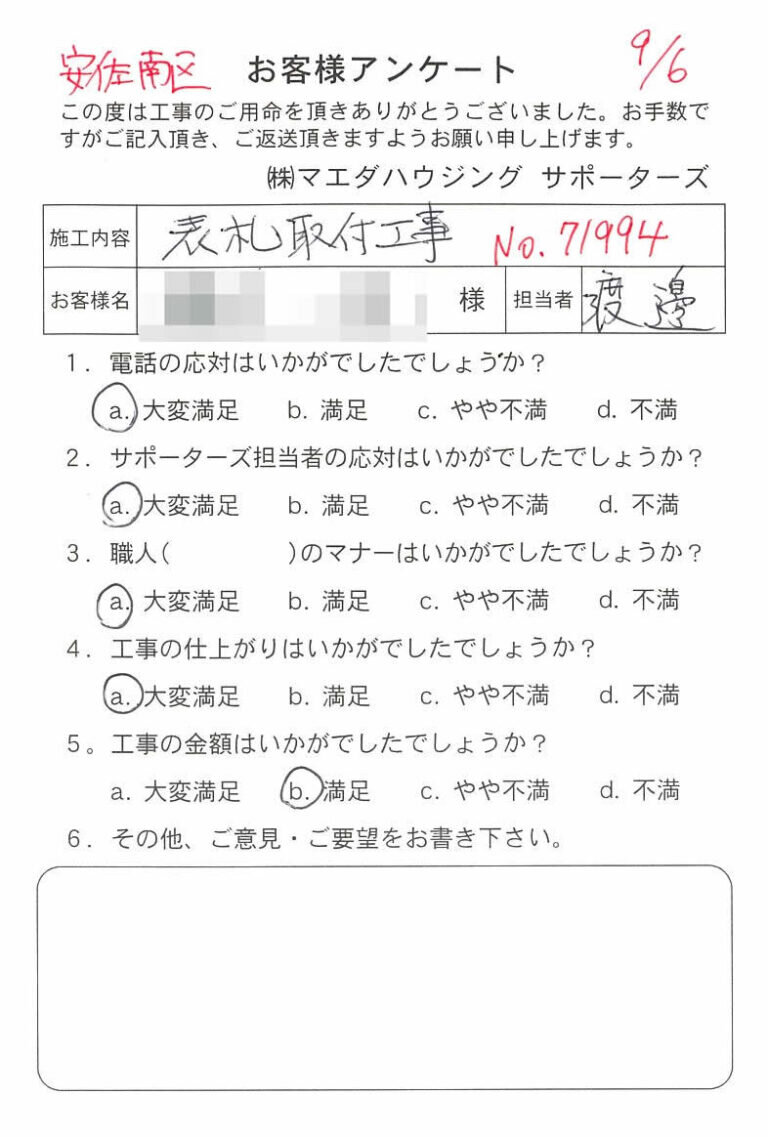 安佐南区 お客様アンケート 9/6
この度は工事のご用命を頂きありがとうございました。お手数で
すがご記入頂き、ご返送頂きますようお願い申し上げます。
㈱マエダハウジング サポーターズ
施工内容 表札取付工事 No.71994
お客様名 様 担当者 渡邊
1. 電話の応対はいかがでしたでしょうか？
a. 大変満足 b. 満足 c. やや不満 d. 不満
2. サポーターズ担当者の応対はいかがでしたでしょうか？
a. 大変満足 b. 満足 c. やや不満 d. 不満
3. 職人( )のマナーはいかがでしたでしょうか？
a. 大変満足 b. 満足 c. やや不満 d. 不満
4. 工事の仕上がりはいかがでしたでしょうか？
a. 大変満足 b. 満足 c. やや不満 d. 不満
5。工事の金額はいかがでしたでしょうか？
a. 大変満足 b. 満足 c. やや不満 d. 不満
6. その他、ご意見・ご要望をお書き下さい。